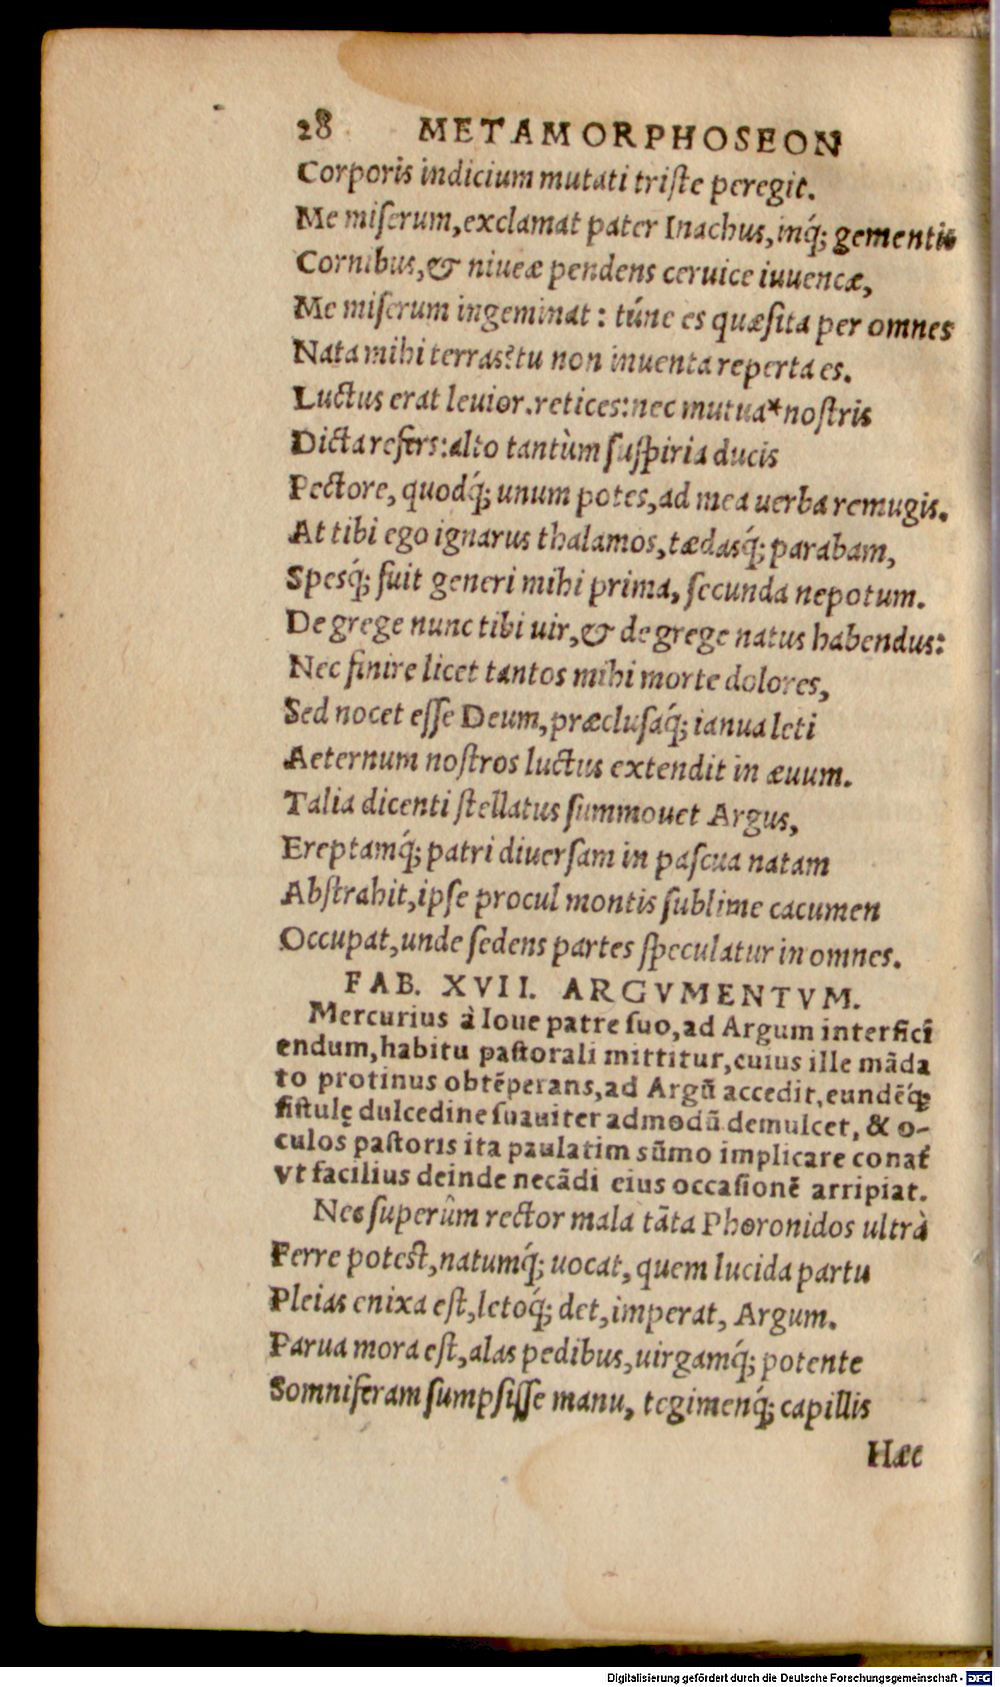 28 METAMORPHOSEON
Corporis indicium mutati triſte peregit.
Me miſerum,exclamat pater Inachus,inq́; gementis
Cornibus,& niueæ pendens ceruice iuuencæ,
Me miſerum ingeminat: túne es quæſita per omnes
Nata mihi terras?tu non inuenta reperta es.
Luctus erat leuior.retices:nec mutua*noſtris
Dicta refers:alto tantùm ſuſpiria ducis
Pectore, quodq́; unum potes,ad mea uerba remugis.
At tibi ego ignarus thalamos,tædasq́; parabam,
Spesq́; fuit generi mihi prima, ſecunda nepotum.
De grege nunc tibi uir,& de grege natus habendus:
Nec finire licet tantos mihi morte dolores,
Sed nocet eſſe Deum,præcluſaq́; ianua leti
Aeternum noſtros luctus extendit in æuum.
Talia dicenti ſtellatus ſummouet Argus,
Ereptamq́; patri diuerſam in paſcua natam
Abſtrahit,ipſe procul montis ſublime cacumen
Occupat,unde ſedens partes ſpeculatur in omnes.
FAB. XVII. ARGVMENTVM.
Mercurius à Ioue patre ſuo,ad Argum interfici
endum,habitu paſtorali mittitur,cuius ille mãda
to protinus obtẽperans,ad Argũ accedit,eundẽq́;
fiſtulę dulcedine ſuauiter admodũ demulcet, & o-
culos paſtoris ita paulatim ſũmo implicare conat́
vt facilius deinde necãdi eius occaſionẽ arripiat.
Nec ſuperûm rector mala tãta Phoronidos ultrà
Ferre poteſt,natumq́; uocat,quem lucida partu
Pleias enixa eſt,letoq́; det,imperat, Argum.
Parua mora eſt,alas pedibus,uirgamq́; potente
Somniferam ſumpſiſſe manu, tegimenq́; capillis
Hæc
Digitalisierung gefördert durch die Deutsche Forschungsgemeinschaft - DFG